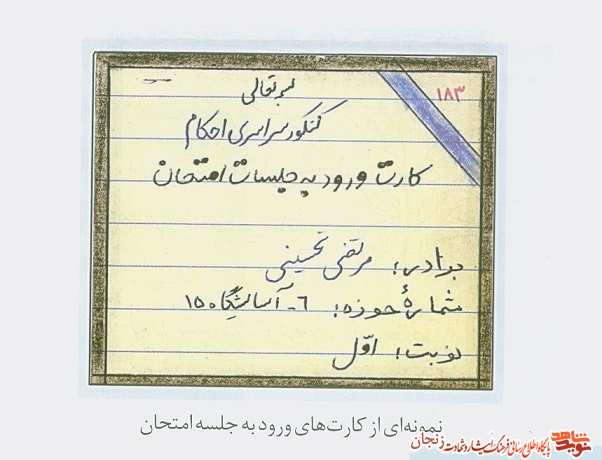 ۱۸۳
بسمه تعالی
کنکور سراسری احکام
کارت ورود به جلسات امتحان
برادر: مرتضی تحسینی
شمارهٔ حوزه: ٦- آسایشگاه ۱۵۰
نوبت: اوّل
نمونه‌ای از کارت‌های ورود به جلسه امتحان
نوید شاهد
پایگاه اطلاع رسانی فرهنگ ایثار و شهادت زنجان